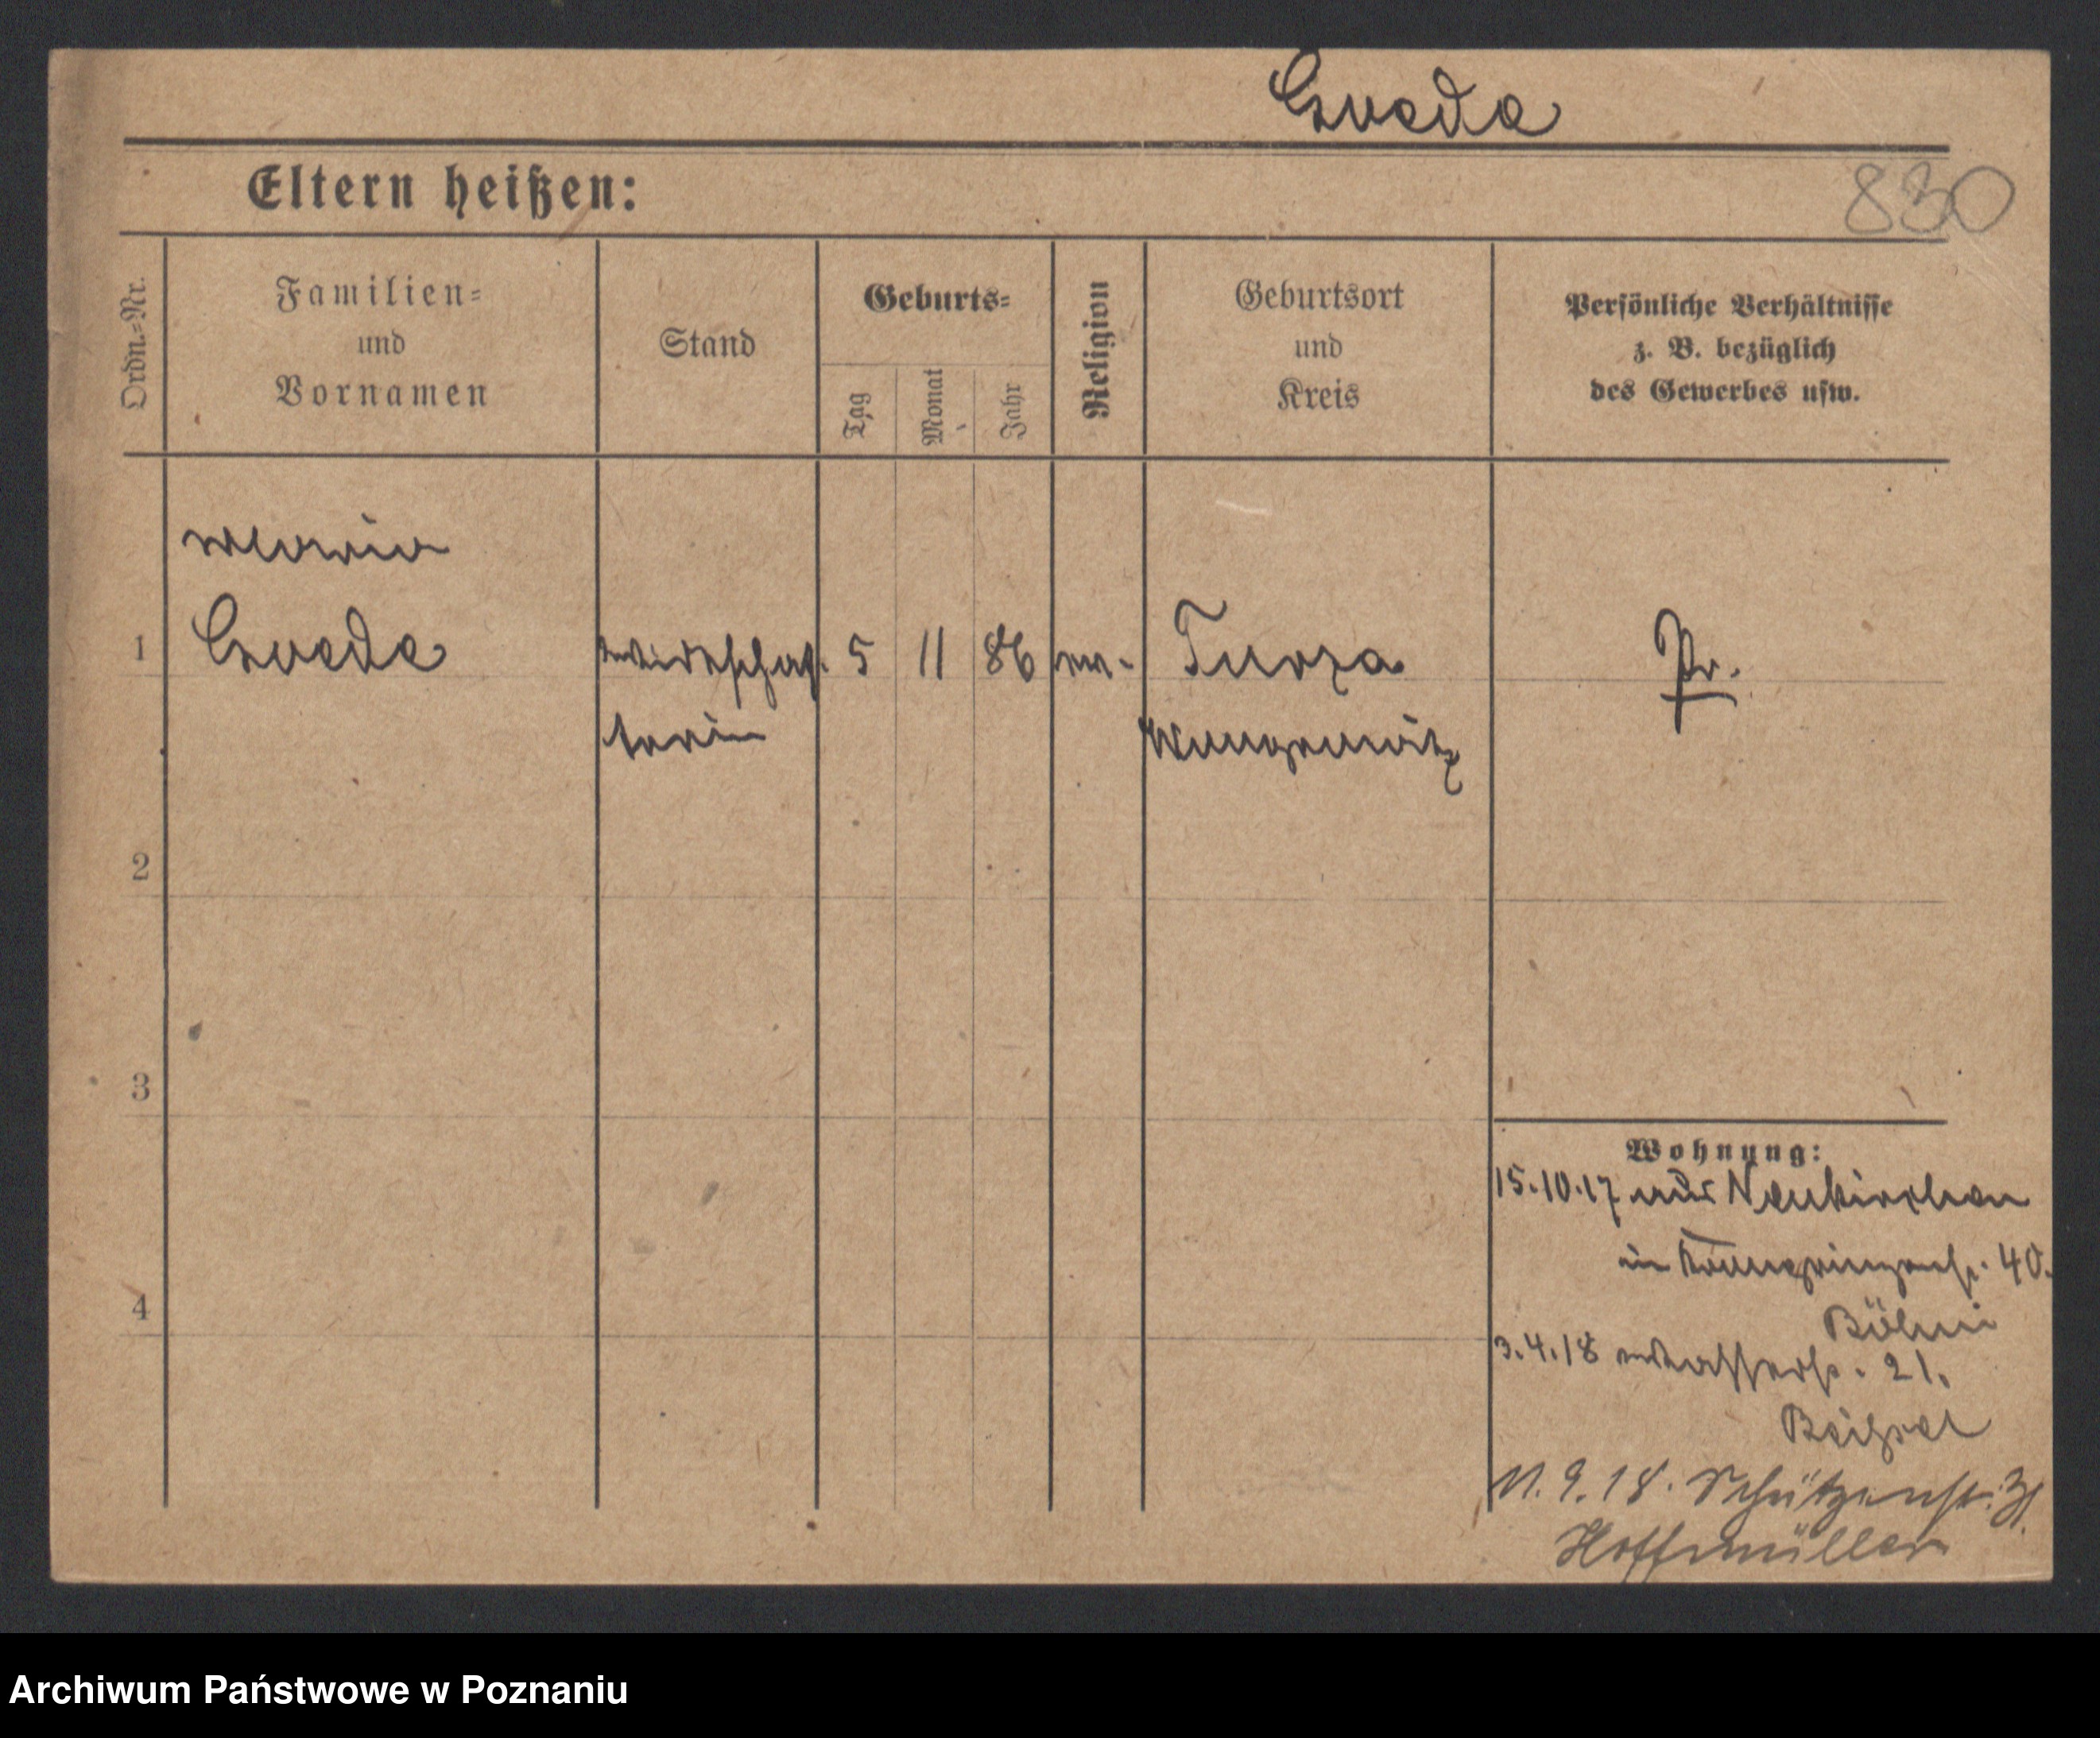 Gvede
Eltern heißen:
830
Ordn.-Nr.
Familien-
und
Vornamen
Stand
Geburts-
Tag
Monat
Jahr
Religion
Geburtsort
und
Kreis
Persönliche Verhältnisse
z. B. bezüglich
des Gewerbes usw.
Maria
1 Gvede Wirtschaf- 5 11 86 Turza Pr.
terin Wongrowitz
2
3
4
Wohnung:
15.10.17 aus Neukirchen
in 40.
Böhm
3.4.18 Wasserstr. 21.
11.9.18. Schützenstr. 31.
Hoffmüller
Archiwum Państwowe w Poznaniu